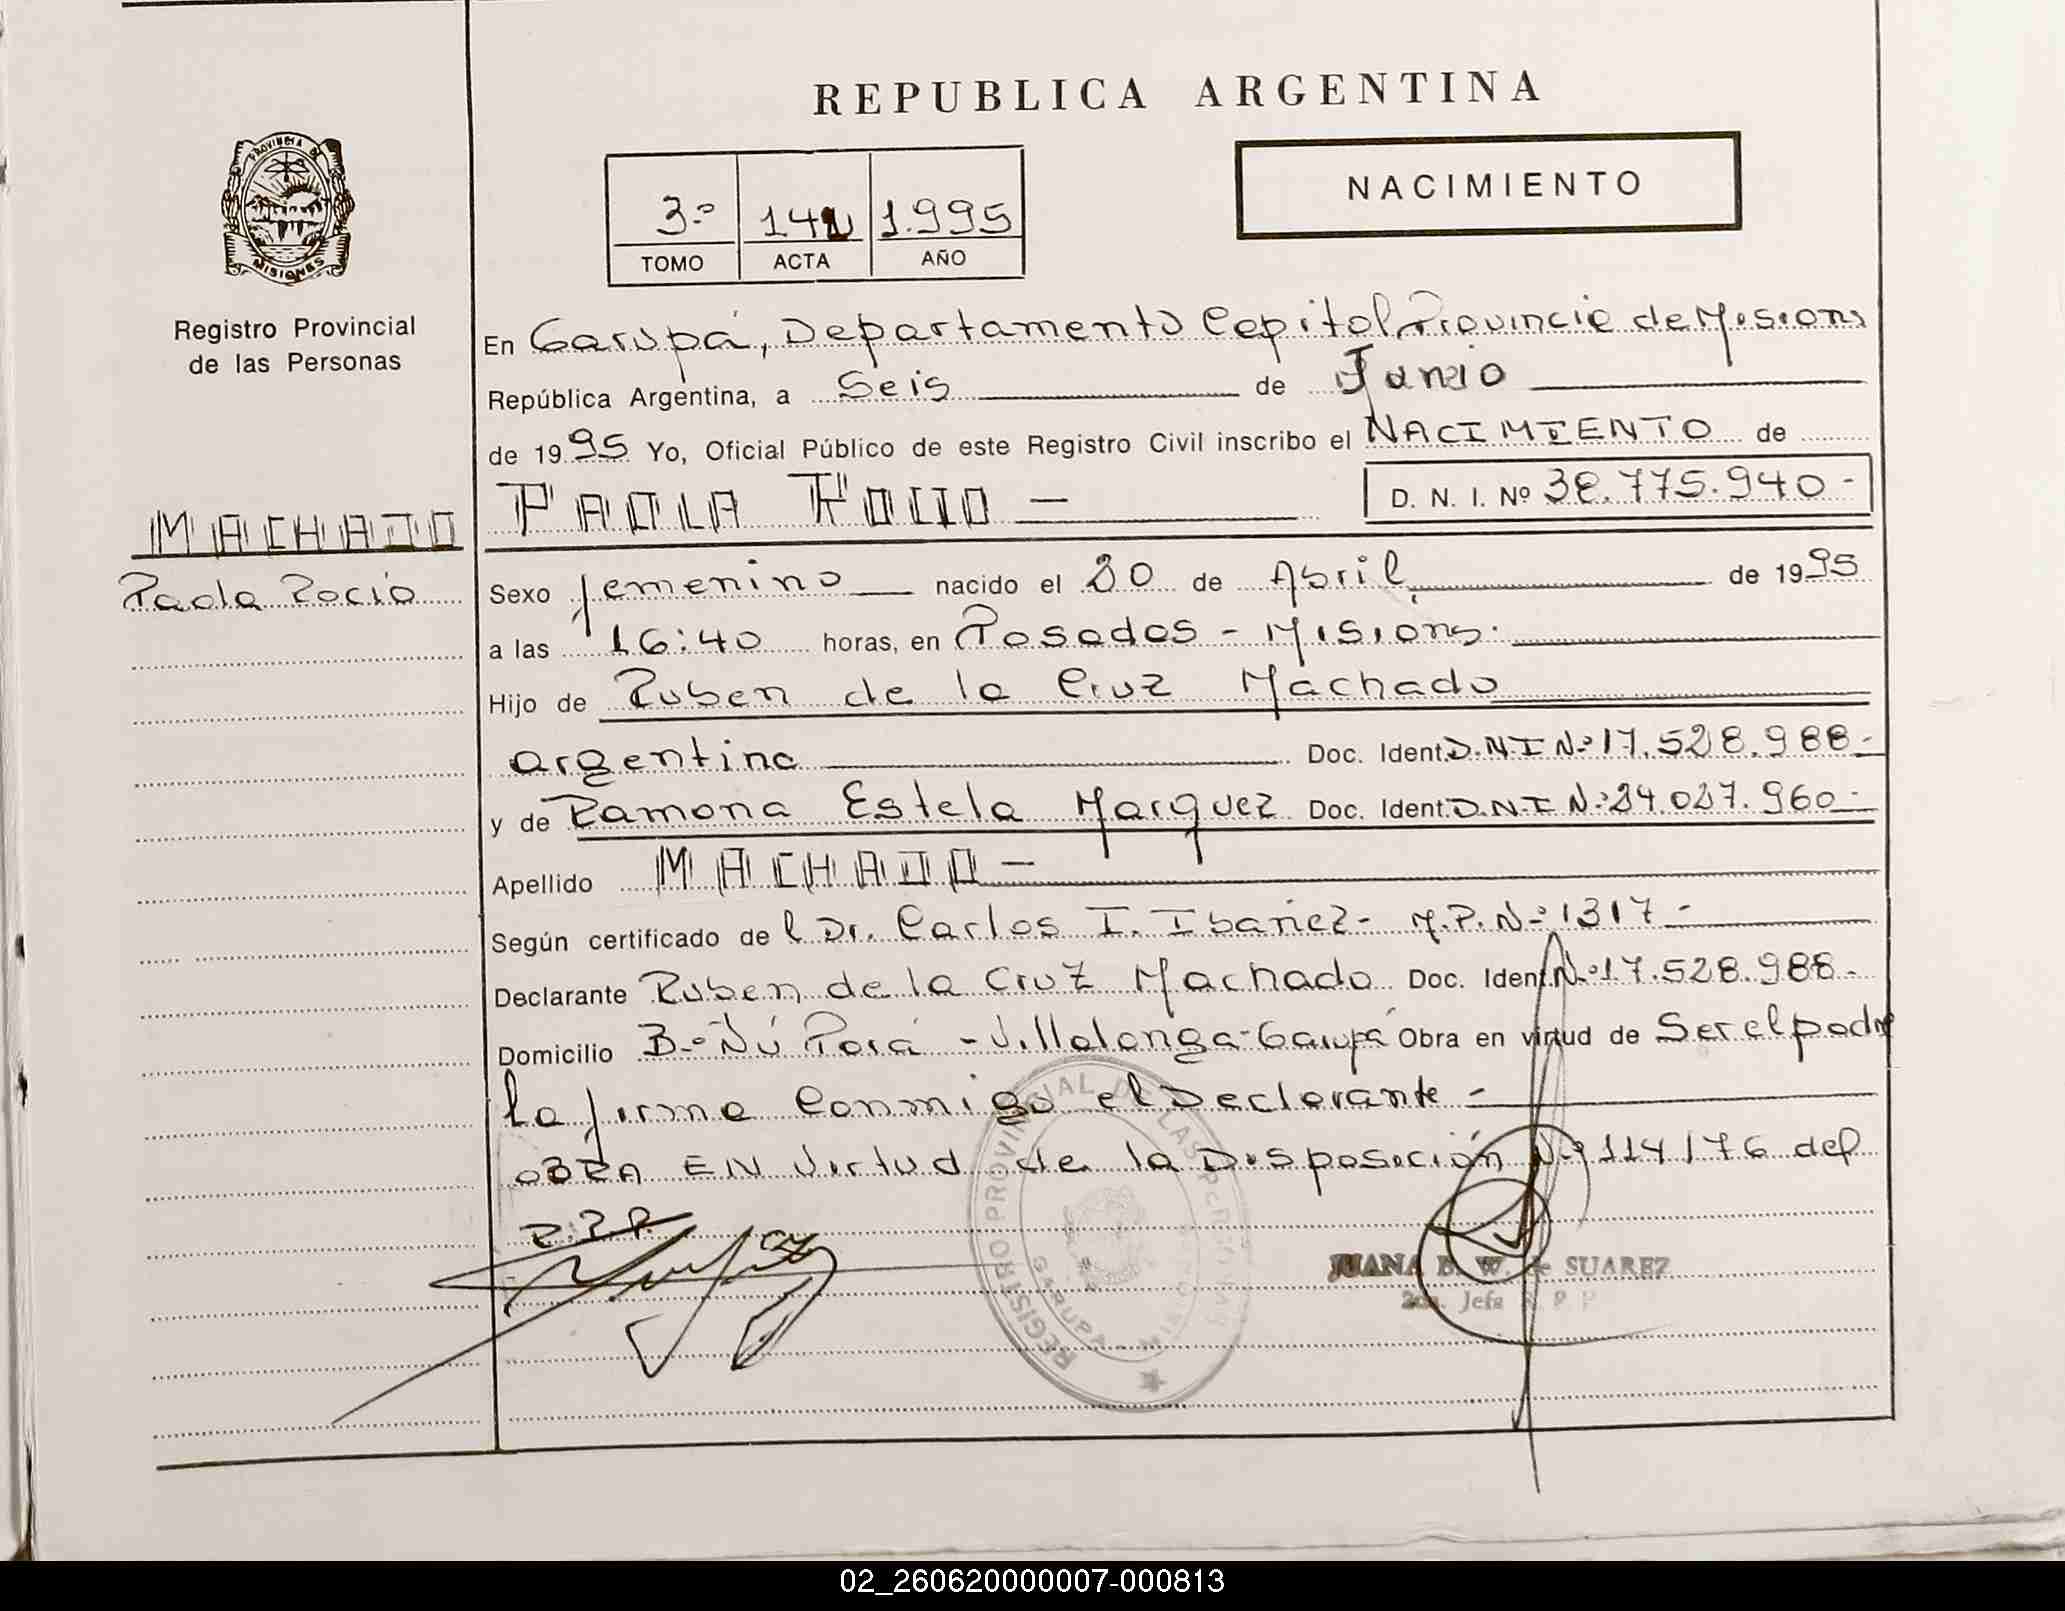 REPUBLICA ARGENTINA
PROVINCIA DE
MISIONES
Registro Provincial
de las Personas
3.º 1.995
TOMO ACTA AÑO
NACIMIENTO
En Garupá, Departamento Capital Provincia de Misiones
República Argentina, a Seis de Junio
de 1995 Yo, Oficial Público de este Registro Civil inscribo el NACIMIENTO de
MACHADO
Paola Rocio
PAOLA ROCIO — D. N. I. Nº 38.775.940-
Sexo femenino nacido el 20 de Abril de 1995
a las 16:40 horas, en Posadas - Misiones.
Hijo de Ruben de la Cruz Machado
argentina Doc. Ident. D.N.I Nº 17.528.988-
y de Ramona Estela Marquez Doc. Ident. D.N.I Nº 24.027.960-
Apellido MACHADO —
Según certificado de l Dr. Carlos I. Ibañez- M.P.Nº 1317-
Declarante Ruben de la Cruz Machado Doc. Ident. Nº 17.528.988-
Domicilio Bº Ñú Porá - Villalonga - Garupá Obra en virtud de Ser el padre
La firma Conmigo el Declarante -
OBRA EN Virtud de la Disposición Nº 114/76 del
R.P.P.
REGISTRO PROVINCIAL DE LAS PERSONAS
GARUPA - MISIONES
JUANA B. W. de SUAREZ
2da. Jefa R. P. P.
02_260620000007-000813